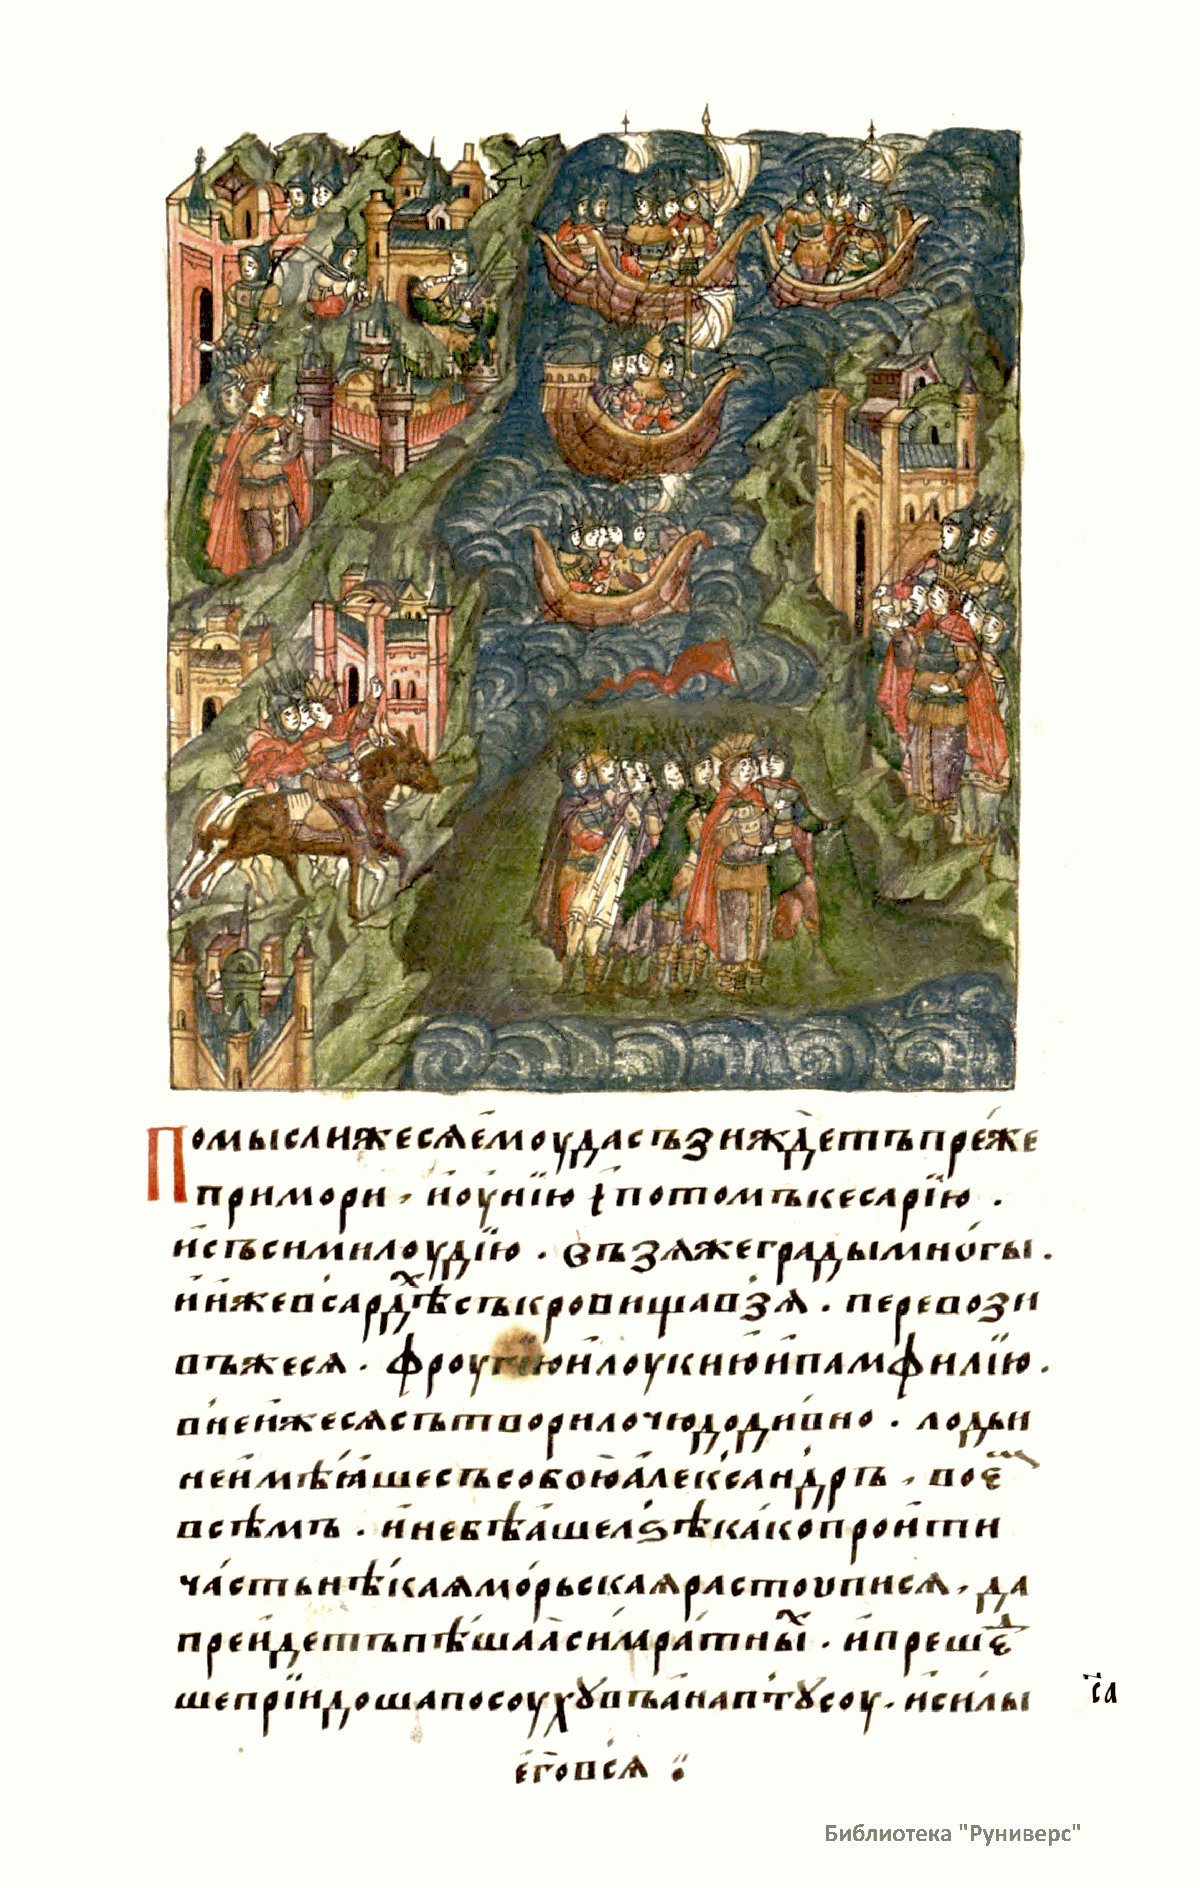 Помыслижесѧ емоу дасъ зиждетъ преже
примори, и оунїю ꙇ потомъ кесарїю .
и съ симилоудїю . взѧ же грады многы .
и иже в сардѣⷯ съкровища взѧ . перевози
въ же сѧ . фроугїю и лоукию и памфилїю .
в неи же сѧ сътвори лочюдо дивно . лодьи
не имѣаше съ собою алеѯандръ , воеⷳ
всѣмъ . и не бѣаше лѕѣ како проити
часть нѣкаꙗ морьскаꙗ растоупи сѧ , да
преидетъ пѣшаа сила ратныⷯ . и прешеⷣ
ше прїидоша по соухꙋ въ анаптꙋсоу . и силы
его всѧ :
са
Библиотека "Руниверс"